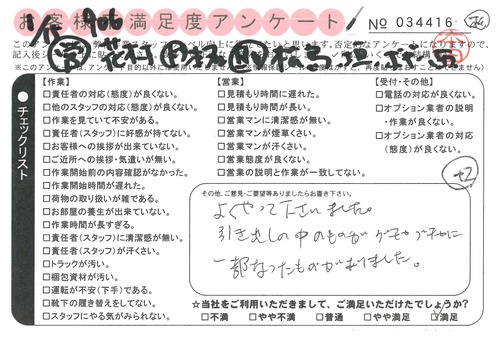 お客様満足度アンケート
No 034416
※このアンケートは、アンケート目的以外には使用いたしません。
チェックリスト
【作業】
□責任者の対応(態度)が良くない。
□他のスタッフの対応(態度)が良くない。
□作業を見ていて不安がある。
□責任者(スタッフ)に好感が持てない。
□お客様への挨拶が出来ていない。
□ご近所への挨拶・気遣いが無い。
□作業開始前の内容確認がなかった。
□作業開始時間が遅れた。
□荷物の取り扱いが雑である。
□お部屋の養生が出来ていない。
□作業時間が長すぎる。
□責任者(スタッフ)に清潔感が無い。
□責任者(スタッフ)が汗くさい。
□トラックが汚い。
□梱包資材が汚い。
□運転が不安(下手)である。
□靴下の履き替えをしてない。
□スタッフにやる気がみられない。
【営業】
□見積もり時間に遅れた。
□見積もり時間が長い。
□営業マンに清潔感が無い。
□営業マンが煙草くさい。
□営業マンが汗くさい。
□営業態度が良くない。
□営業の説明と作業が一致してない。
【受付・その他】
□電話の対応が良くない。
□オプション業者の説明
・作業が良くない。
□オプション業者の対応
(態度)が良くない。
その他、ご意見・ご要望等ありましたらお書き下さい。
よくやって下さいました。
引き出しの中のものがグチャグチャに
一部なったものがありました。
☆当社をご利用いただきまして、ご満足いただけたでしょうか?
□不満 □やや不満 □普通 □やや満足 □満足